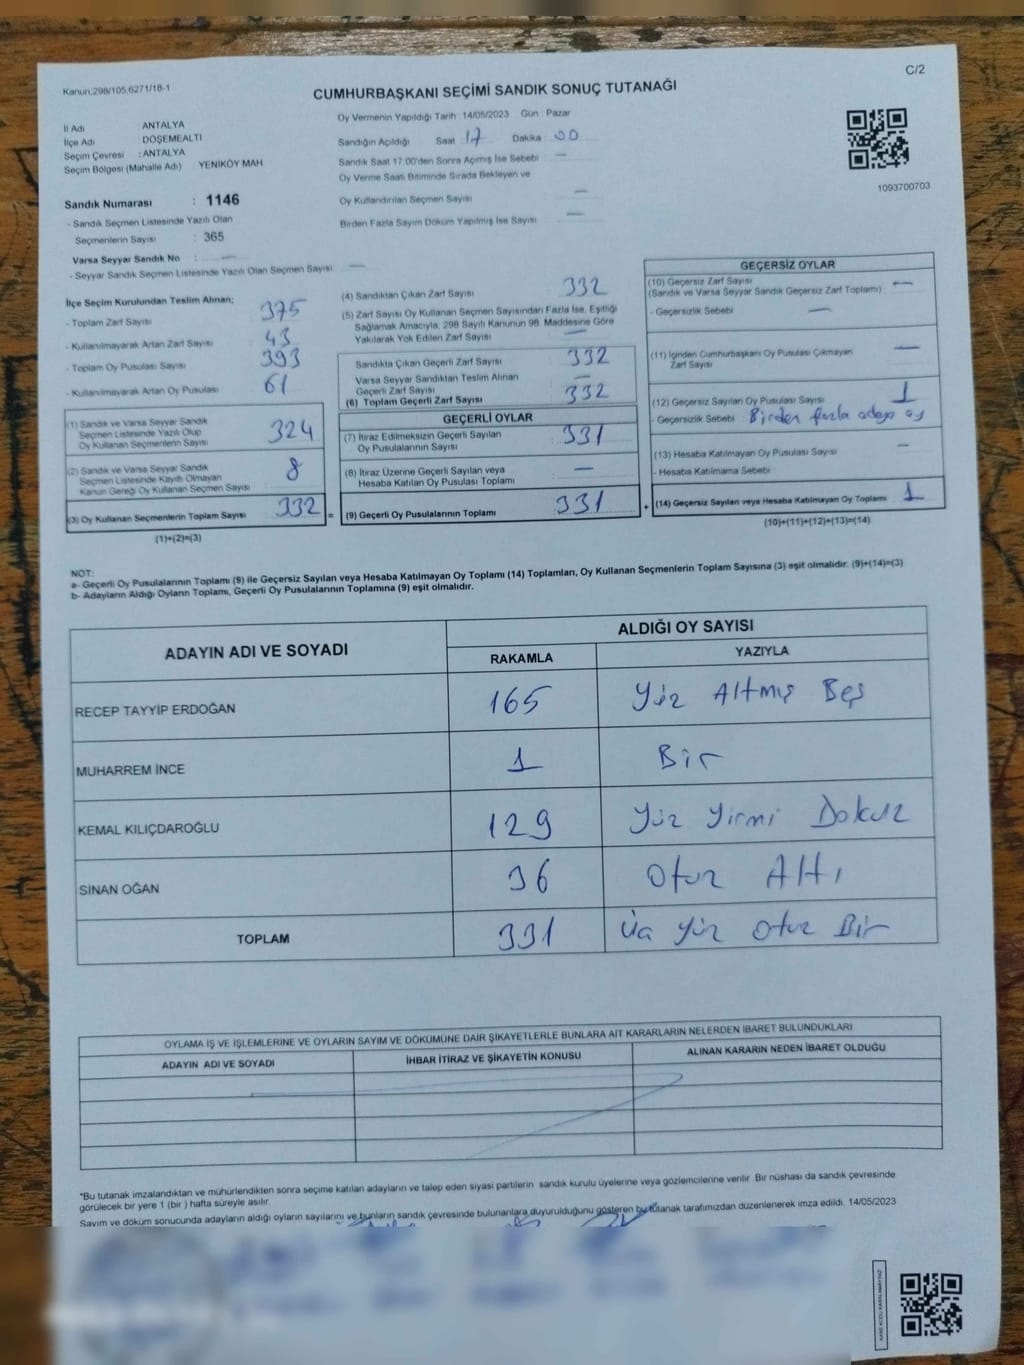 C/2
Kanun;298/105,6271/18-1
CUMHURBAŞKANI SEÇİMİ SANDIK SONUÇ TUTANAĞI
İl Adı ANTALYA
İlçe Adı DÖŞEMEALTI
Seçim Çevresi : ANTALYA
Seçim Bölgesi (Mahalle Adı) : YENİKÖY MAH
Sandık Numarası : 1146
- Sandık Seçmen Listesinde Yazılı Olan
Seçmenlerin Sayısı : 365
Varsa Seyyar Sandık No : —
- Seyyar Sandık Seçmen Listesinde Yazılı Olan Seçmen Sayısı : —
Oy Vermenin Yapıldığı Tarih : 14/05/2023 Gün : Pazar
Sandığın Açıldığı Saat 17 Dakika 00
Sandık Saat 17:00'den Sonra Açmış İse Sebebi —
Oy Verme Saati Bitiminde Sırada Bekleyen ve
Oy Kullandırılan Seçmen Sayısı —
Birden Fazla Sayım Döküm Yapılmış İse Sayısı —
1093700703
İlçe Seçim Kurulundan Teslim Alınan;
- Toplam Zarf Sayısı 375
- Kullanılmayarak Artan Zarf Sayısı 43
- Toplam Oy Pusulası Sayısı 393
- Kullanılmayarak Artan Oy Pusulası 61
(1) Sandık ve Varsa Seyyar Sandık
Seçmen Listesinde Yazılı Olup
Oy Kullanan Seçmenlerin Sayısı 324
(2) Sandık ve Varsa Seyyar Sandık
Seçmen Listesinde Kayıtlı Olmayan
Kanun Gereği Oy Kullanan Seçmen Sayısı 8
(3) Oy Kullanan Seçmenlerin Toplam Sayısı 332 =
(1)+(2)=(3)
(4) Sandıktan Çıkan Zarf Sayısı 332
(5) Zarf Sayısı Oy Kullanan Seçmen Sayısından Fazla İse, Eşitliği
Sağlamak Amacıyla, 298 Sayılı Kanunun 98. Maddesine Göre
Yakılarak Yok Edilen Zarf Sayısı —
Sandıkta Çıkan Geçerli Zarf Sayısı 332
Varsa Seyyar Sandıktan Teslim Alınan
Geçerli Zarf Sayısı —
(6) Toplam Geçerli Zarf Sayısı 332
GEÇERLİ OYLAR
(7) İtiraz Edilmeksizin Geçerli Sayılan
Oy Pusulalarının Sayısı 331
(8) İtiraz Üzerine Geçerli Sayılan veya
Hesaba Katılan Oy Pusulası Toplamı —
(9) Geçerli Oy Pusulalarının Toplamı 331 +
GEÇERSİZ OYLAR
(10) Geçersiz Zarf Sayısı
(Sandık ve Varsa Seyyar Sandık Geçersiz Zarf Toplamı) : —
- Geçersizlik Sebebi —
(11) İçinden Cumhurbaşkanı Oy Pusulası Çıkmayan
Zarf Sayısı —
(12) Geçersiz Sayılan Oy Pusulası Sayısı 1
- Geçersizlik Sebebi Birden fazla adaya oy
(13) Hesaba Katılmayan Oy Pusulası Sayısı —
- Hesaba Katılmama Sebebi
(14) Geçersiz Sayılan veya Hesaba Katılmayan Oy Toplamı 1
(10)+(11)+(12)+(13)=(14)
NOT:
a- Geçerli Oy Pusulalarının Toplamı (9) ile Geçersiz Sayılan veya Hesaba Katılmayan Oy Toplamı (14) Toplamları, Oy Kullanan Seçmenlerin Toplam Sayısına (3) eşit olmalıdır. (9)+(14)=(3)
b- Adayların Aldığı Oyların Toplamı, Geçerli Oy Pusulalarının Toplamına (9) eşit olmalıdır.
ADAYIN ADI VE SOYADI ALDIĞI OY SAYISI
RAKAMLA YAZIYLA
RECEP TAYYİP ERDOĞAN 165 Yüz Altmış Beş
MUHARREM İNCE 1 Bir
KEMAL KILIÇDAROĞLU 129 Yüz Yirmi Dokuz
SİNAN OĞAN 36 Otuz Altı
TOPLAM 331 Üç Yüz Otuz Bir
OYLAMA İŞ VE İŞLEMLERİNE VE OYLARIN SAYIM VE DÖKÜMÜNE DAİR ŞİKAYETLERLE BUNLARA AİT KARARLARIN NELERDEN İBARET BULUNDUKLARI
ADAYIN ADI VE SOYADI İHBAR İTİRAZ VE ŞİKAYETİN KONUSU ALINAN KARARIN NEDEN İBARET OLDUĞU
*Bu tutanak imzalandıktan ve mühürlendikten sonra seçime katılan adayların ve talep eden siyasi partilerin sandık kurulu üyelerine veya gözlemcilerine verilir. Bir nüshası da sandık çevresinde
görülecek bir yere 1 (bir ) hafta süreyle asılır.
Sayım ve döküm sonucunda adayların aldığı oyların sayılarını ve bunların sandık çevresinde bulunanlara duyurulduğunu gösteren bu tutanak tarafımızdan düzenlenerek imza edildi. 14/05/2023
KARE KODU KARALAMAYINIZ